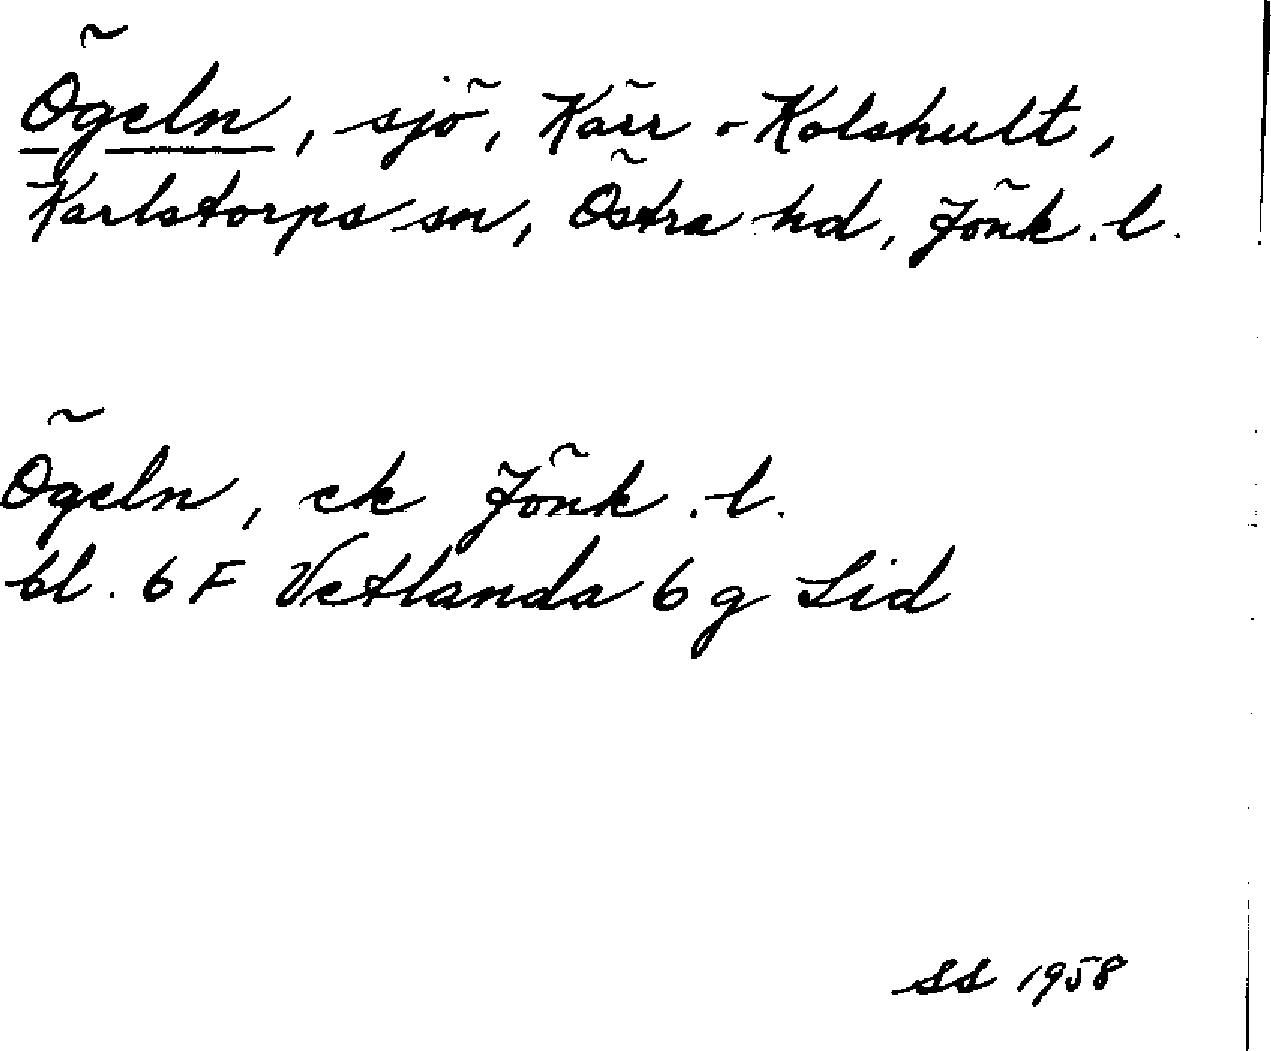 Ögeln, sjö, Kärr o Kolshult,
Karlstorps sn, Östra hd, Jönk. l.
Ögeln, ek Jönk. l.
bl. 6 F Vetlanda 6 g Lid
SS 1958